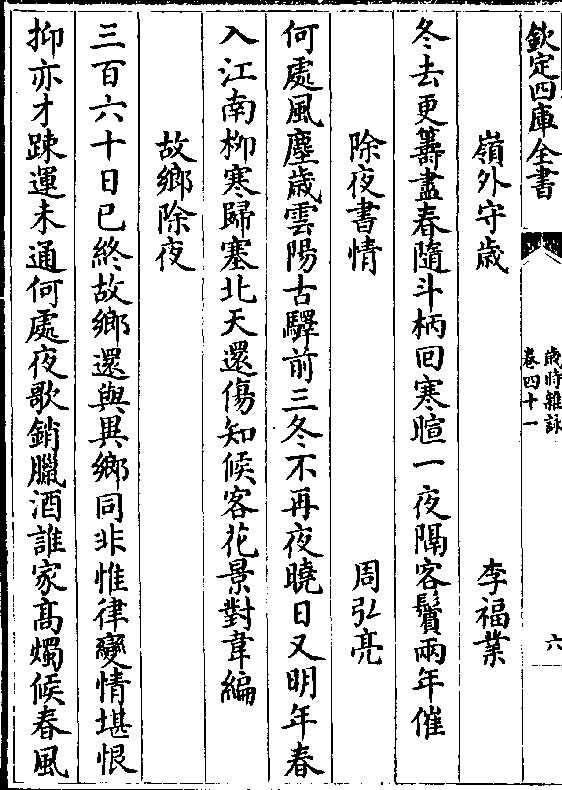 欽定四庫全書
歲時雜詠
卷四十一
六
嶺外守歳 李福業
冬去更籌盡春隨斗柄回寒暄一夜隔客鬢兩年催
除夜書情 周弘亮
何處風塵歳雲陽古驛前三冬不再夜曉日又明年春
入江南柳寒歸塞北天還傷知候客花景對韋編
故鄉除夜
三百六十日已終故鄉還與異鄉同非惟律變情堪恨
抑亦才踈運未通何處夜歌銷臘酒誰家髙燭候春風